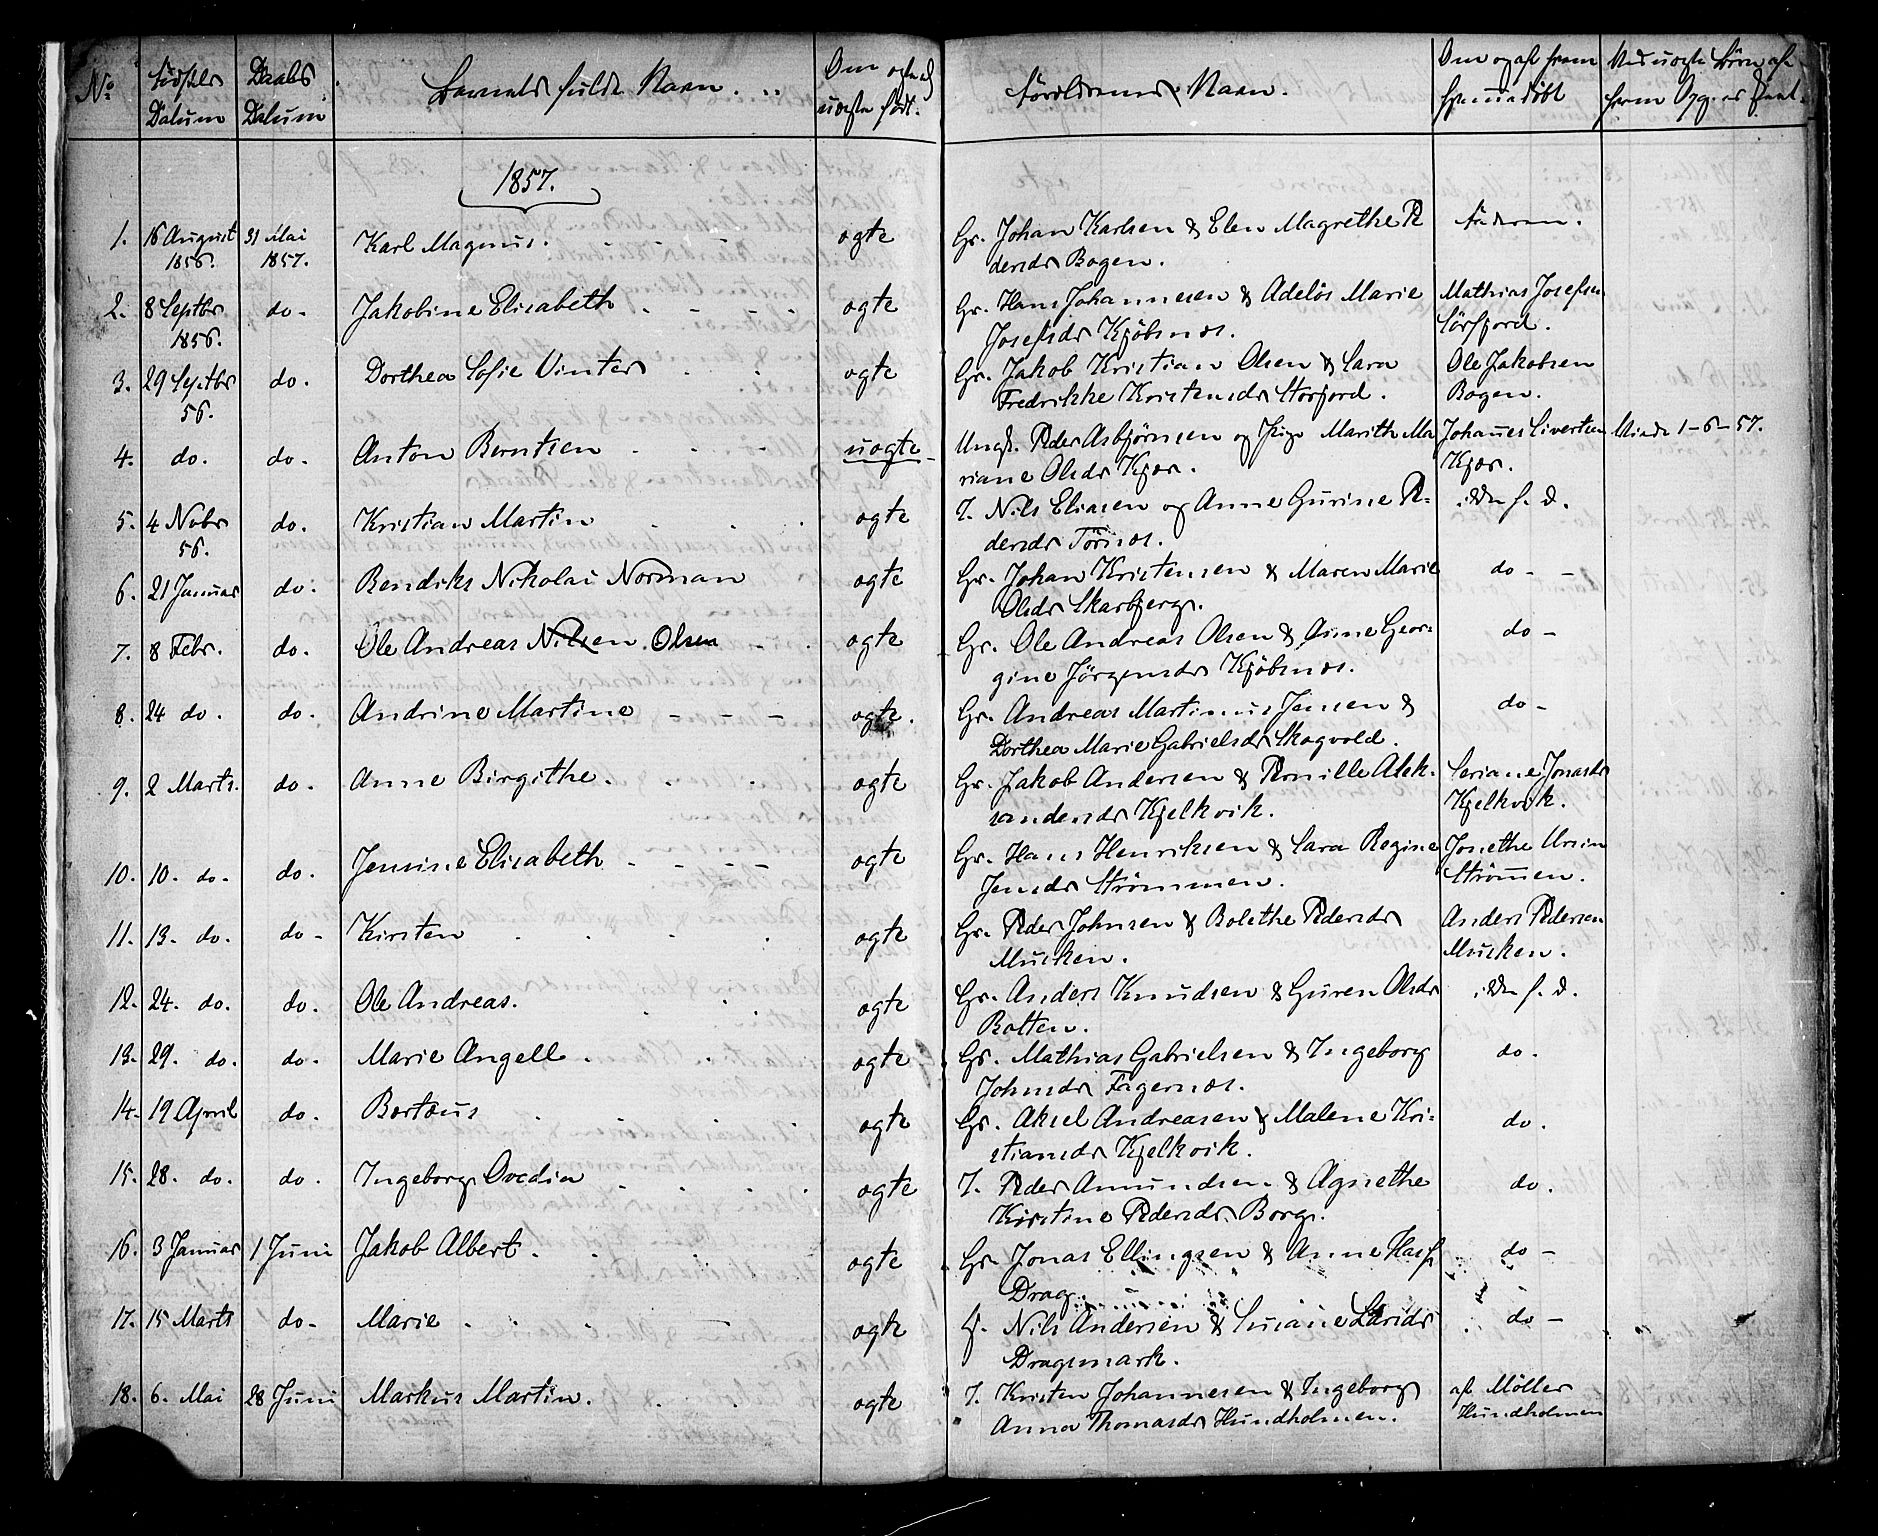 No Fødsels Daabs Barnets fulde Navn. Om ægte el Forældrenes Navn. Om og af hvem
Datum Datum uægte født. hjemmedøbt
1857.
1. 16 August 31 Mai Karl Magnus. ægte Gr. Johan Karlsen & Elen Magrethe Pe Faderen.
1856. 1857. dersdr Bogen.
2. 8 Septbr do. Jakobine Elisabeth ægte Gr. Hans Johannesen & Adelös Marie Mathias Josefsen
1856. Josefsdr Kjöbsnæs. Sörfjord.
3. 29 Septbr do. Dorthea Sofie Vinter ægte Gr. Jakob Kristian Olsen & Sara Ole Jakobsen
56. Fredrikke Kristensdr Storfjord. Bogen.
4. do. do. Anton Berntsen uægte Ungk. Peder Asbjørnsen og Pige Marith Ma Johannes Sivertsen 1-6-57.
riane Olsdr Kjær. Kjær.
5. 4 Novbr do. Kristian Martin ægte I. Nils Eliasen og Anne Gurine Pe- ikke h. d.
56. dersdr Törnæs.
6. 21 Januar do. Bendiks Nikolai Norman ægte Gr. Johan Kristensen & Maren Marie do
Olsdr Skarbjerg.
7. 8 Febr. do. Ole Andreas Nilsen Olsen ægte Gr. Ole Andreas Olsen & Anne Geor- do
gine Jörgensdr Kjöbsnæs.
8. 24 do. do. Andrine Martine ægte. Gr. Andreas Martinus Jensen & do
Dorthea Marie Gabrielsdr Skogvold.
9. 2 Marts. do. Anne Birgithe. ægte Gr. Jakob Andersen & Pernille Alek- Seriane Jonasdr
sandersdr Kjelkvik. Kjelkvik.
10. 10. do. do. Jensine Elisabeth ægte Gr. Hans Henriksen & Sara Regine Jonethe Ursin
Jensdr Strömmen. Strömmen.
11. 13. do. do Kirsten ægte Gr. Peder Johnsen & Bolethe Pedersdr Anders Pedersen
Musken. Musken.
12. 24. do. do. Ole Andreas. ægte Gr. Anders Knudsen & Guren Olsdr ikke h. d.
Botten.
13. 29. do. do. Marie Angell ægte Gr. Mathias Gabrielsen & Ingeborg do.
Johnsdr Fagernæs.
14. 19 April do. Bertæus ægte Gr. Aksel Andreasen & Malene Kri- do.
stiansdr Kjelkvik.
15. 28. do. do. Ingeborg Ovedia ægte I. Peder Amundsen & Agnethe do.
Kirstine Pedersdr Borg.
16. 3 Januar 1 Juni Jakob Albert. ægte Gr. Jonas Ellingsen & Anne do
Drag.
17. 15 Marts do. Marie ægte Nils Andersen & Susane Larsdr do
Dragsmark.
18. 6. Mai 28 Juni Markus Martin. ægte I. Kristen Johannesen & Ingeborg af Möller
Anna Thomasdr Hundholmen. Hundholmen